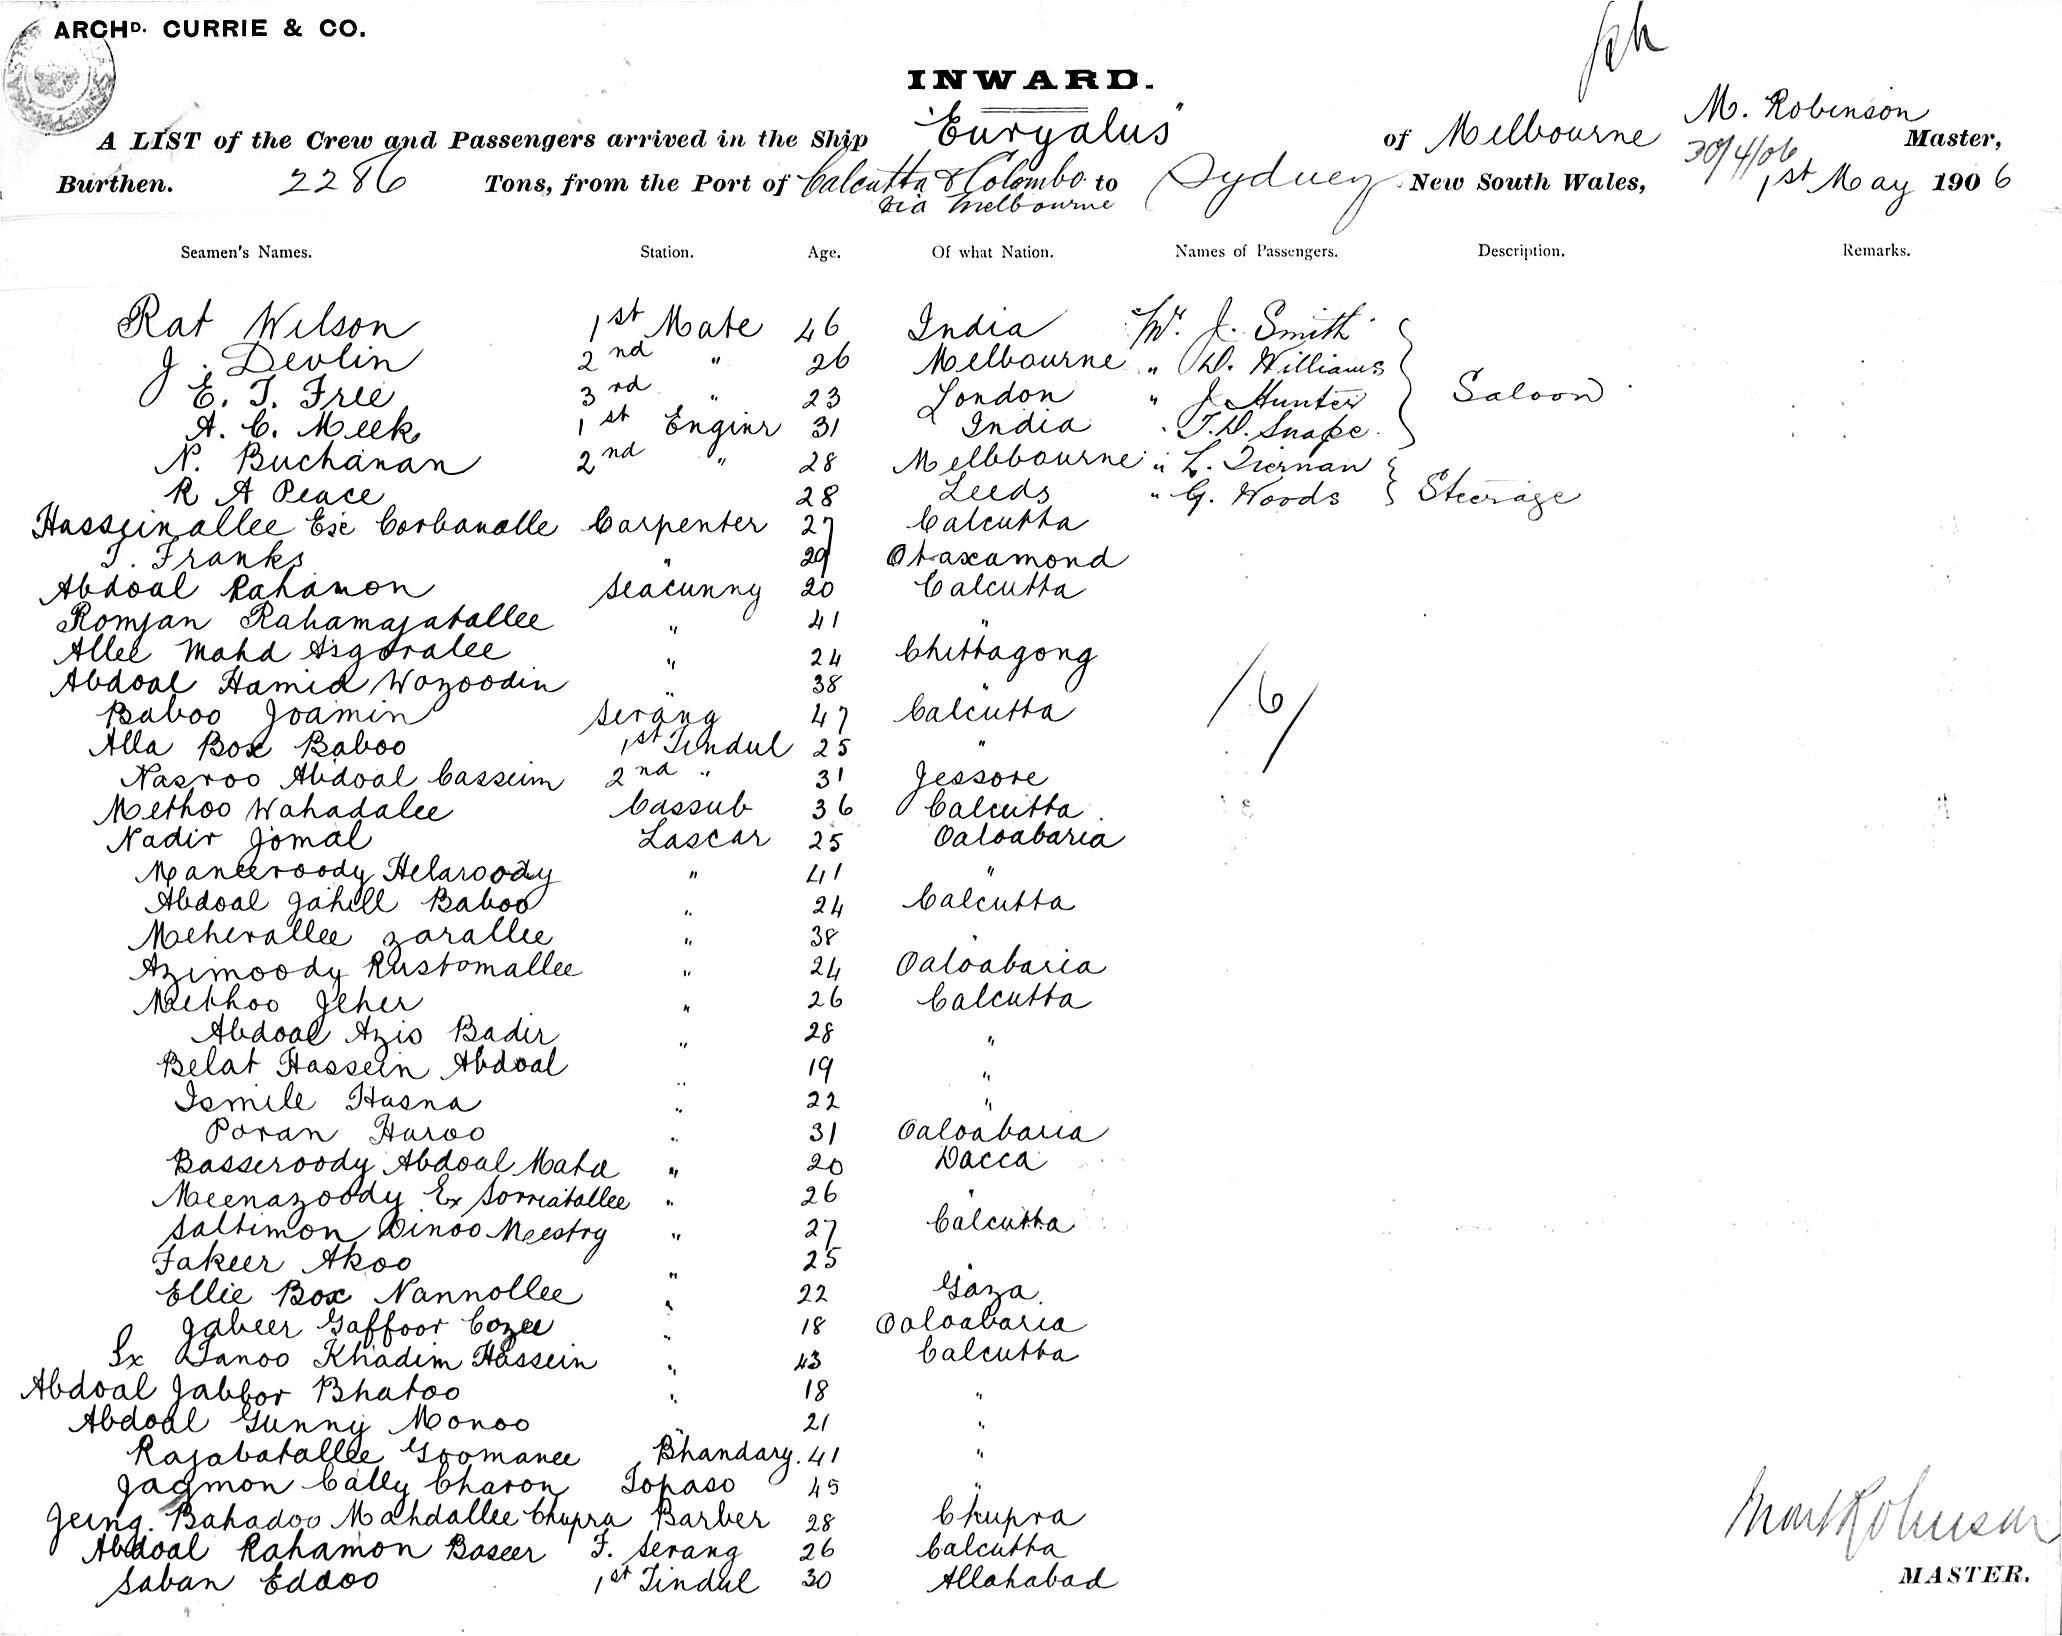 ARCHD. CURRIE & CO.
INWARD.
A LIST of the Crew and Passengers arrived in the Ship "Euryalus" of Melbourne M. Robinson Master,
30/4/06
Burthen. 2286 Tons, from the Port of Calcutta & Colombo to Sydney New South Wales, 1st May 1906
via Melbourne
Seamen's Names. Station. Age. Of what Nation. Names of Passengers. Description. Remarks.
Rat Wilson 1st Mate 46 India Mr. J. Smith
J. Devlin 2nd " 26 Melbourne " W. Williams
E. T. Free 3rd " 23 London " J. Hunter Saloon
A. C. Meek 1st Enginr 31 India " T. W. Snape
N. Buchanan 2nd " 28 Melbbourne " L. Tiernan
R A Peace 28 Leeds " G. Woods Steerage
Hasseinallee Esc Corbanalle Carpenter 27 Calcutta
T. Franks " 29 Otaxamond
Abdoal Rahamon Seacunny 20 Calcutta
Romjan Rahamajatallee " 41 "
Allee Mahd Asgoralee " 24 Chittagong
Abdoal Hamid Wozoodin " 38 "
Baboo Joamin Serang 47 Calcutta
Alla Box Baboo 1st Tindul 25 "
Nasroo Abdoal Casseim 2nd " 31 Jessore
Methoo Wahadalee Cassub 36 Calcutta
Nadir Jomal Lascar 25 Oaloabaria
Maneeroody Helaroody " 41 "
Abdoal Jahill Baboo " 24 Calcutta
Meherallee Zorallee " 38 "
Azimoody Rustomallee " 24 Oaloabaria
Methoo Jeher " 26 Calcutta
Abdoal Azis Badir " 28 "
Belat Hassein Abdoal " 19 "
Ismile Hasna " 22 "
Poran Haroo " 31 Oaloabaria
Basseroody Abdoal Mahd " 20 Dacca
Meenazoody Ex Sorriatallee " 26 "
Saltimon Dinoo Meestry " 27 Calcutta
Fakeer Akoo " 25 "
Ellie Box Nannollee " 22 Gaza
Jabeer Gaffoor Cozee " 18 Oaloabaria
Sx Tanoo Khadim Hassein " 43 Calcutta
Abdoal Jabbor Bhatoo " 18 "
Abdoal Gunny Monoo " 21 "
Rajabatallee Gromanee Bhandary. 41 "
Jagmon Cally Charon Topaso 45 "
Jeing. Bahadoo Mahdallee Chupra Barber 28 Chupra
Abdoal Rahamon Baseer F. Serang 26 Calcutta
Saban Eddoo 1st Tindul 30 Allahabad
/6/
Mark Robinson
MASTER.